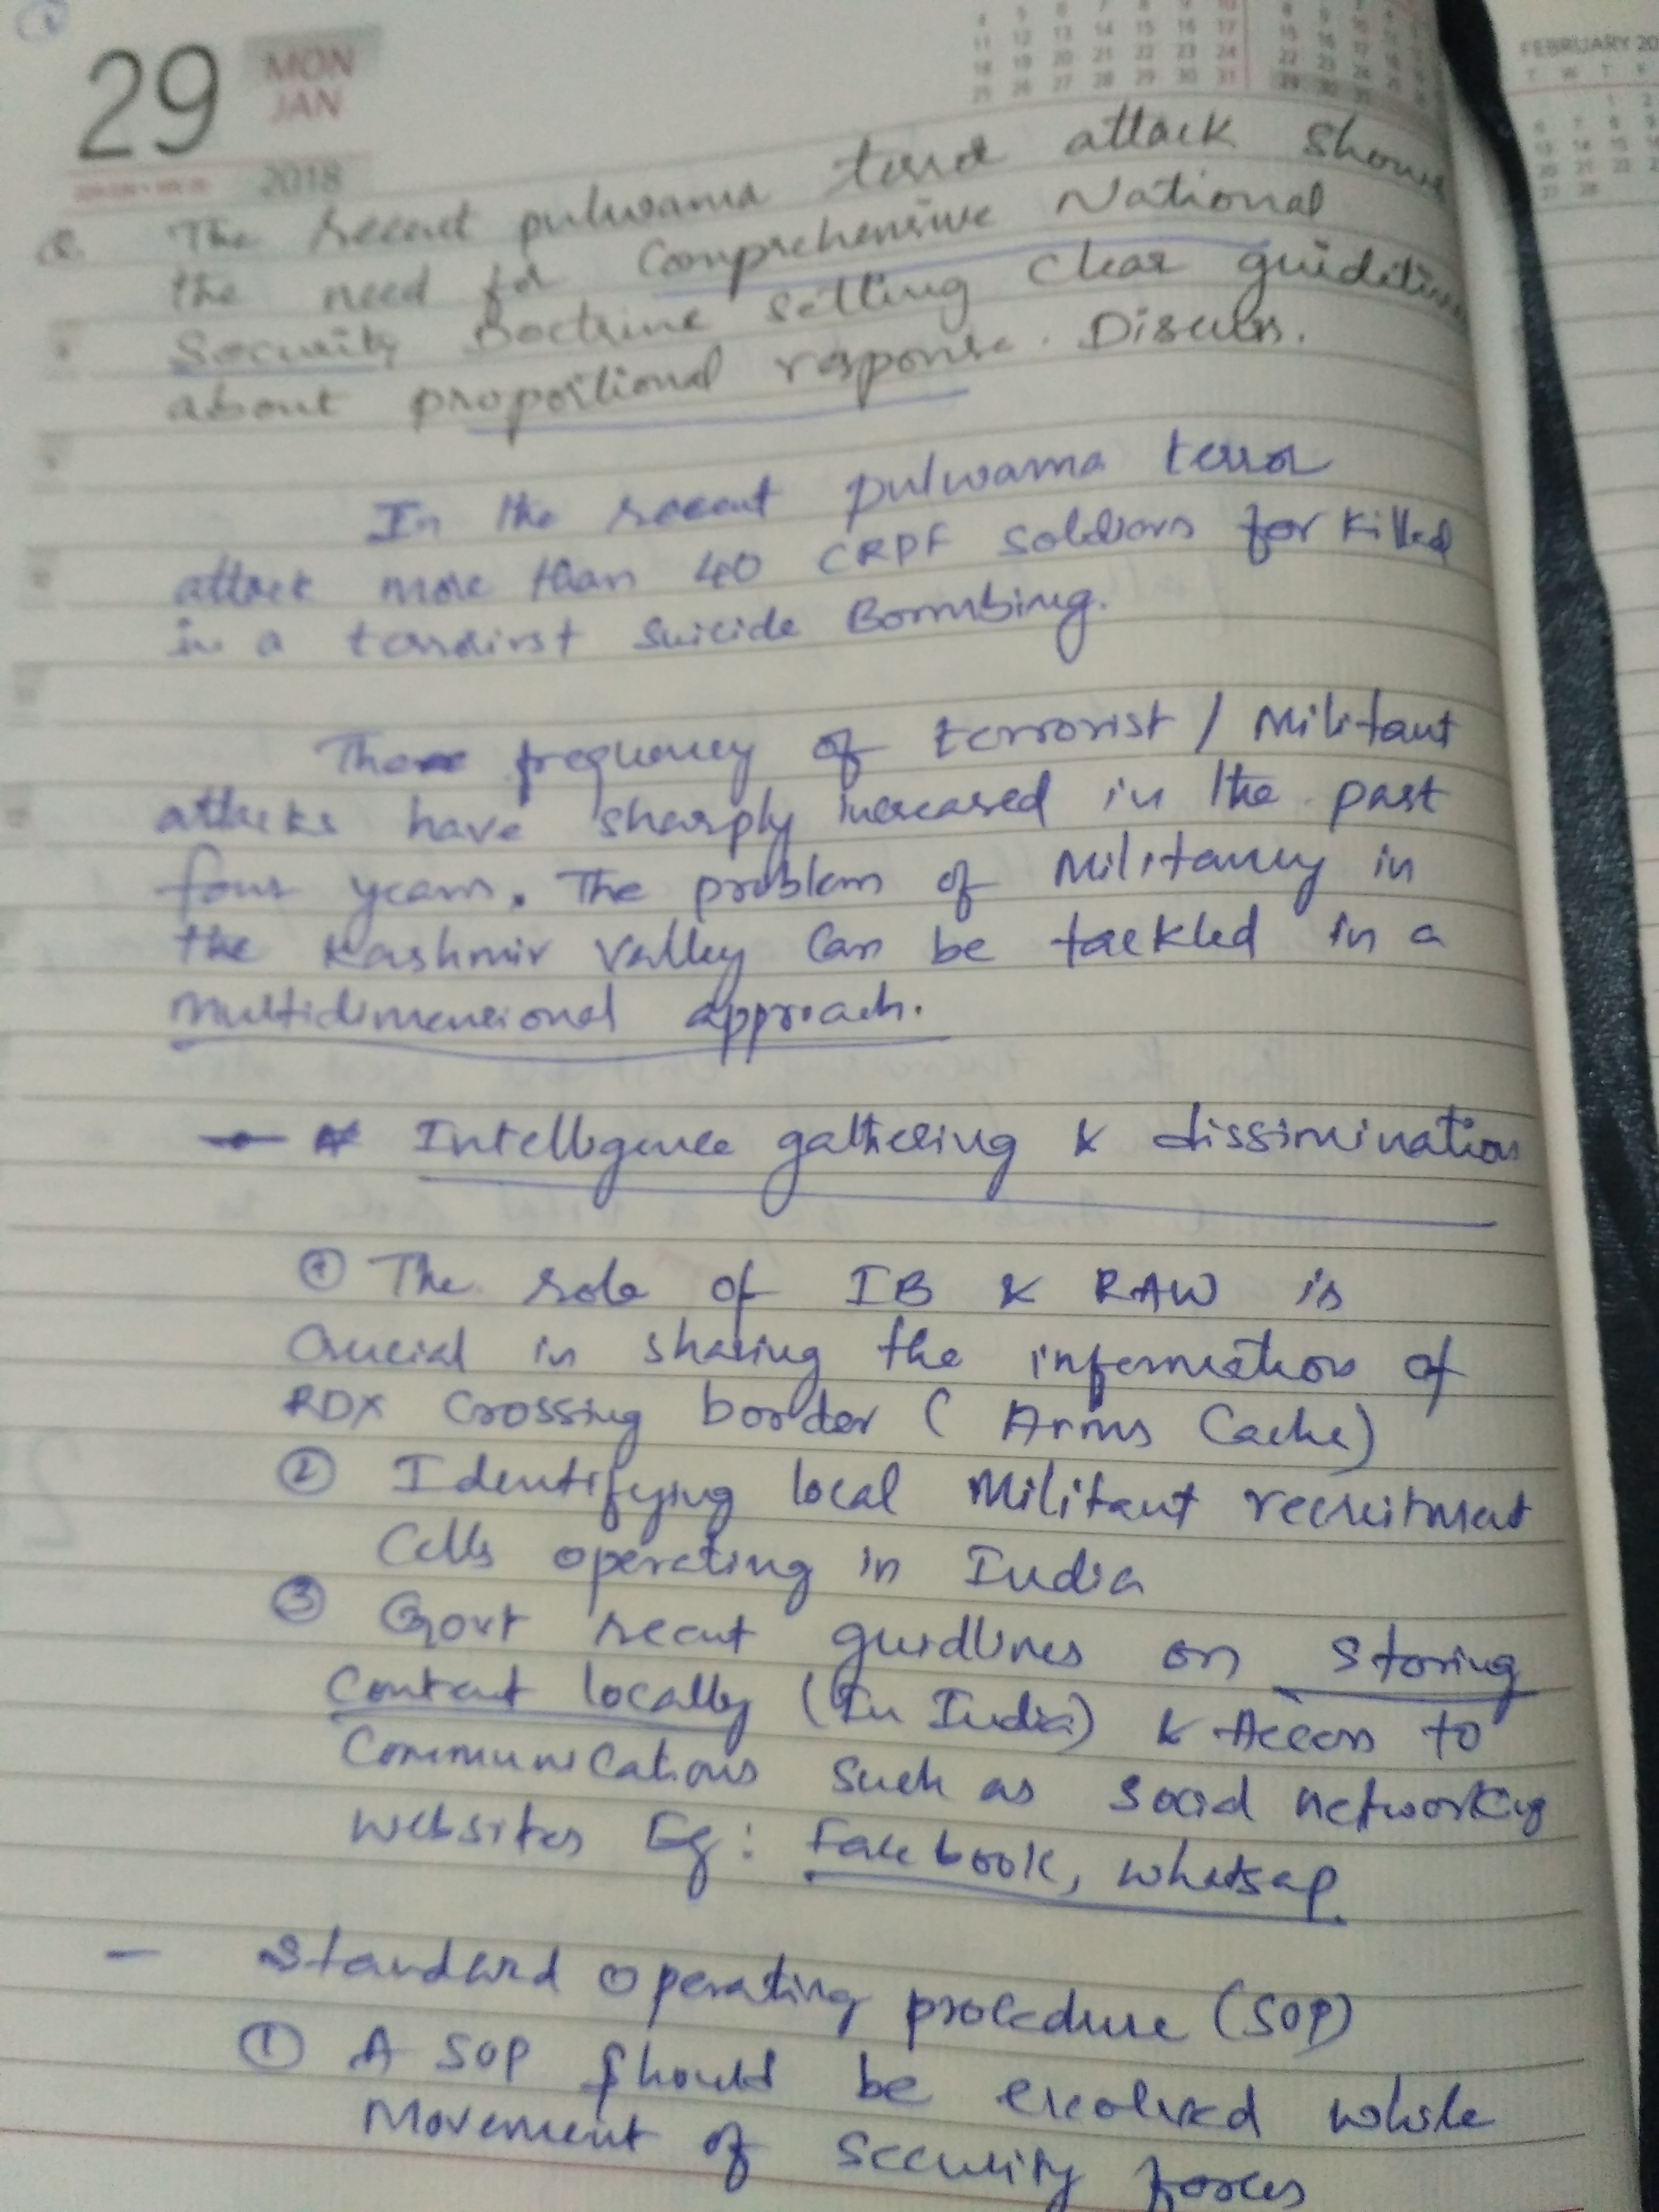 29 MON
JAN
2018
FEBRUARY 20
Q. The recent pulwama terror attack shows
the need for Comprehensive National
Security Doctrine setting clear guidelines
about proportional response. Discuss.
In the recent pulwama terror
attack more than 40 CRPF soldiors for killed
in a terroirst Suicide Bombing.
The frequency of terrorist / Militant
attacks have sharply increased in the past
four years. The problem of Militancy in
the Kashmir Valley Can be tackled in a
Multidimensional approach.
Intelligence gathering & dissimination
① The role of IB & RAW is
Crucial in sharing the information of
RDX Crossing border ( Arms Cache)
② Identifying local Militant recruitment
Cells operating in India
③ Govt recent guidlines on storing
Content locally (In India) & Access to
Communications Such as Social networking
websites Eg: Facebook, whatsap.
— Standard operating procedure (SOP)
① A SOP should be evolved while
Movement of Security forces